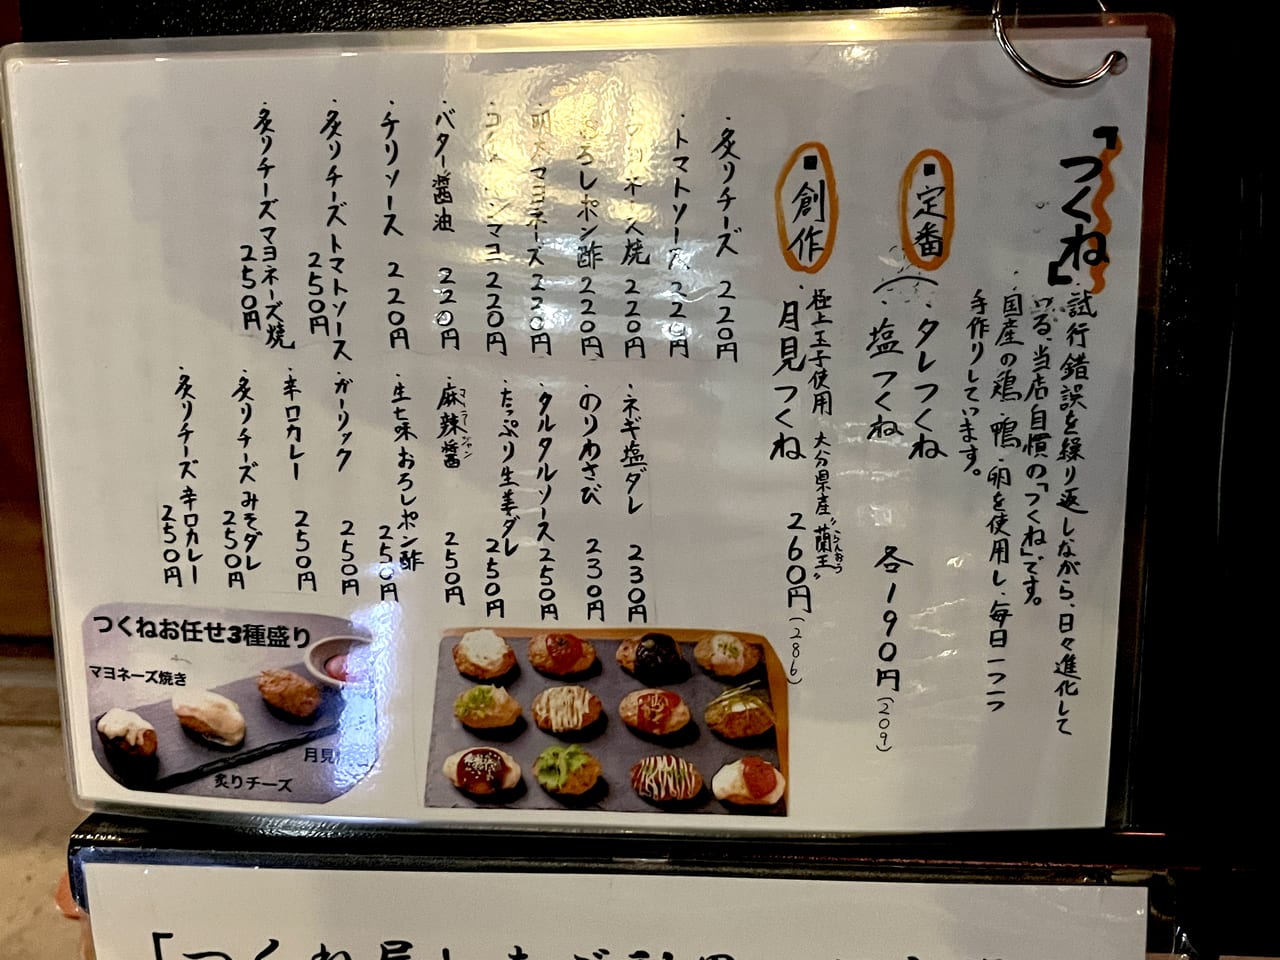 「つくね」
試行錯誤を繰り返しながら、日々進化して
いる、当店自慣の「つくね」です。
国産の鶏・鴨・卵を使用し、毎日一つ一つ
手作りしています。
■定番
・タレつくね
・塩つくね
各190円(209)
■創作
極上玉子使用 大分県産"蘭王"
らんおう
・月見つくね 260円(286)
・炙りチーズ 220円
・トマトソース 220円
マヨネーズ焼 220円
おろしポン酢 220円
・明太マヨネーズ 220円
220円
・バター醤油 220円
・チリソース 220円
・炙りチーズトマトソース 250円
・炙りチーズマヨネーズ焼 250円
・ネギ塩ダレ 230円
・のりわさび 230円
・タルタルソース 250円
・たっぷり生姜ダレ 250円
・麻辣醤 250円
マーラージャン
・生七味おろしポン酢 250円
・ガーリック 250円
・辛口カレー 250円
・炙りチーズみそダレ 250円
・炙りチーズ辛口カレー 250円
つくねお任せ3種盛り
マヨネーズ焼き
月見
炙りチーズ